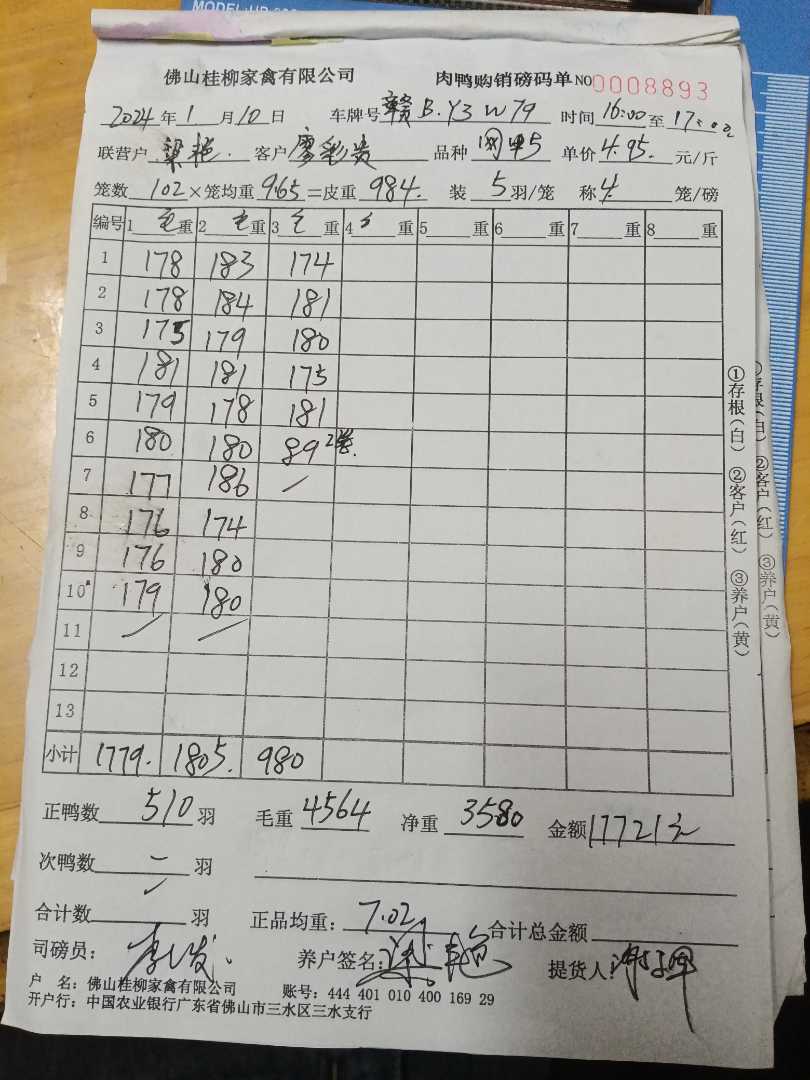 MODEL:HP
佛山桂柳家禽有限公司 肉鸭购销磅码单 NO 0008893
2024 年 1 月 10 日 车牌号 赣B.Y3W79 时间 16:00 至
联营户 客户 廖彩贵 品种 单价 4.95. 元/斤
笼数 102 ×笼均重 9.65 =皮重 984. 装 5 羽/笼 称 4. 笼/磅
编号 1 毛 重 2 毛 重 3 毛 重 4 重 5 重 6 重 7 重 8 重
1 178 183 174
2 178 184 181
3 175 179 180
4 181 181 175
5 179 178 181
6 180 180 89 2笼.
7 177 186 /
8 176 174
9 176 180
10 179 180
11 / /
12
13
小计 1779. 1805. 980
正鸭数 510 羽 毛重 4564 净重 3580 金额 17721元
次鸭数 羽
合计数 羽 正品均重: 7.02 合计总金额
司磅员: 养户签名: 提货人:
户 名: 佛山桂柳家禽有限公司 账号: 444 401 010 400 169 29
开户行: 中国农业银行广东省佛山市三水区三水支行
①存根(白) ②客户(红) ③养户(黄)
存根(白) ②客户(红) ③养户(黄)